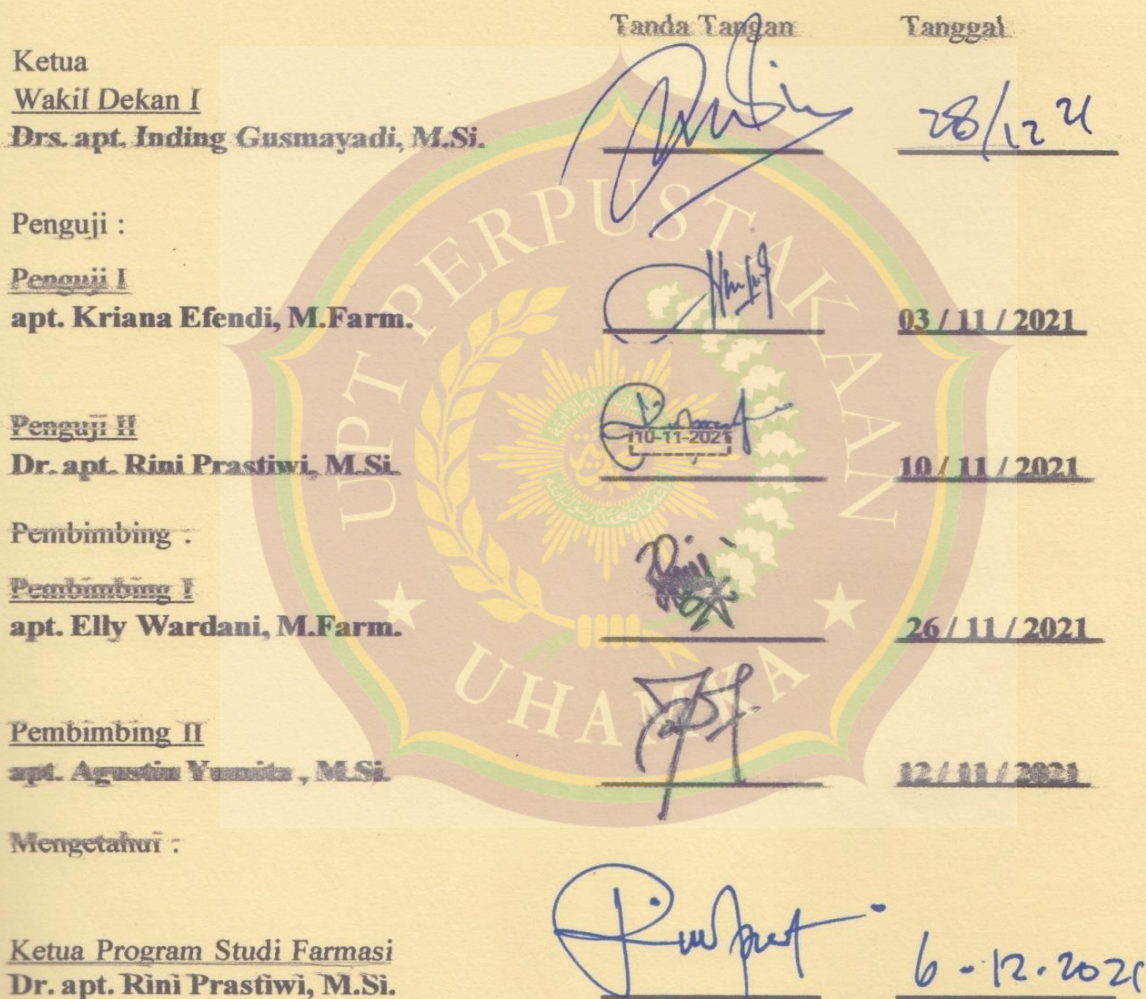 Tanda Tangan Tanggal
Ketua
Wakil Dekan I
Drs. apt. Inding Gusmayadi, M.Si. 28/12 21
Penguji :
Penguji I
apt. Kriana Efendi, M.Farm. 03 / 11 / 2021
Penguji II
10-11-2021
Dr. apt. Rini Prastiwi, M.Si. 10 / 11 / 2021
Pembimbing :
Pembimbing I
apt. Elly Wardani, M.Farm. 26 / 11 / 2021
Pembimbing II
apt. Agustin Yumita , M.Si. 12 / 11 / 2021
Mengetahui :
Ketua Program Studi Farmasi
Dr. apt. Rini Prastiwi, M.Si. 6 - 12 - 2021
UPT PERPUSTAKAAN
UHAMKA